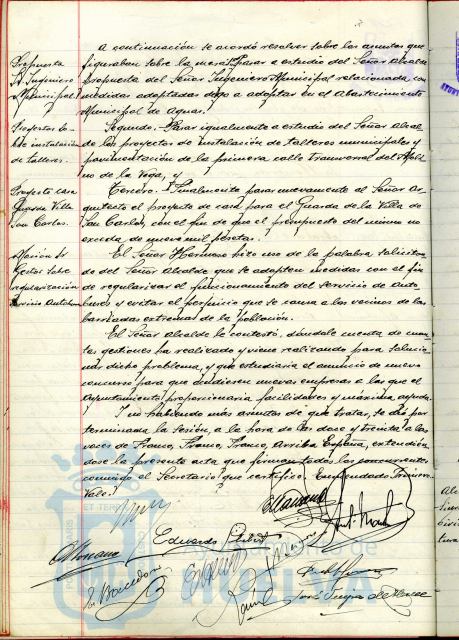 A continuación se acordó resolver sobre los asuntos que
figuraban sobre la mesa: Pasar a estudio del Señor Alcalde
Propuesta
Sr. Ingeniero
Municipal
propuesta del Señor Ingeniero Municipal relacionada con
medidas adoptadas o a adoptar en el Abastecimiento
Municipal de Aguas.
Proyectos so-
bre instalación
de talleres.
Segundo.- Pasar igualmente a estudio del Señor Alcal-
de los proyectos de instalación de talleres municipales y
pavimentación de la primera calle Transversal del Moli-
no de la Vega, y
Proyecto casa
Guarda Villa
San Carlos.
Tercero.- Finalmente pasar nuevamente al Señor Ar-
quitecto el proyecto de casa para el Guarda de la Villa de
San Carlos, con el fin de que el presupuesto del mismo no
exceda de nueve mil pesetas.
Moción Sr.
sobre
regularización
servicio Autobuses
El Señor Hermoso hizo uso de la palabra solicitan-
do del Señor Alcalde que se adopten medidas con el fin
de regularizar el funcionamiento del servicio de Auto-
buses y evitar el perjuicio que se causa a los vecinos de las
barriadas extremas de la población.
El Señor Alcalde le contestó, dándole cuenta de cuan-
tas gestiones ha realizado y viene realizando para solucio-
nar dicho problema, y que estudiaría el anuncio de nuevo
concurso para que acudiesen nuevas empresas a las que el
Ayuntamiento proporcionaría facilidades y máxima ayuda.
Y no habiendo más asuntos de que tratar, se dio por
terminada la sesión, a la hora de las doce y treinta a las
voces de Franco, Franco, Franco, Arriba España, extendién-
dose la presente acta que firman todos los concurrentes
conmigo el Secretario que certifico. Enmendado: Primera
Vale.
Eduardo
Ayuntamiento de
HUELVA
José